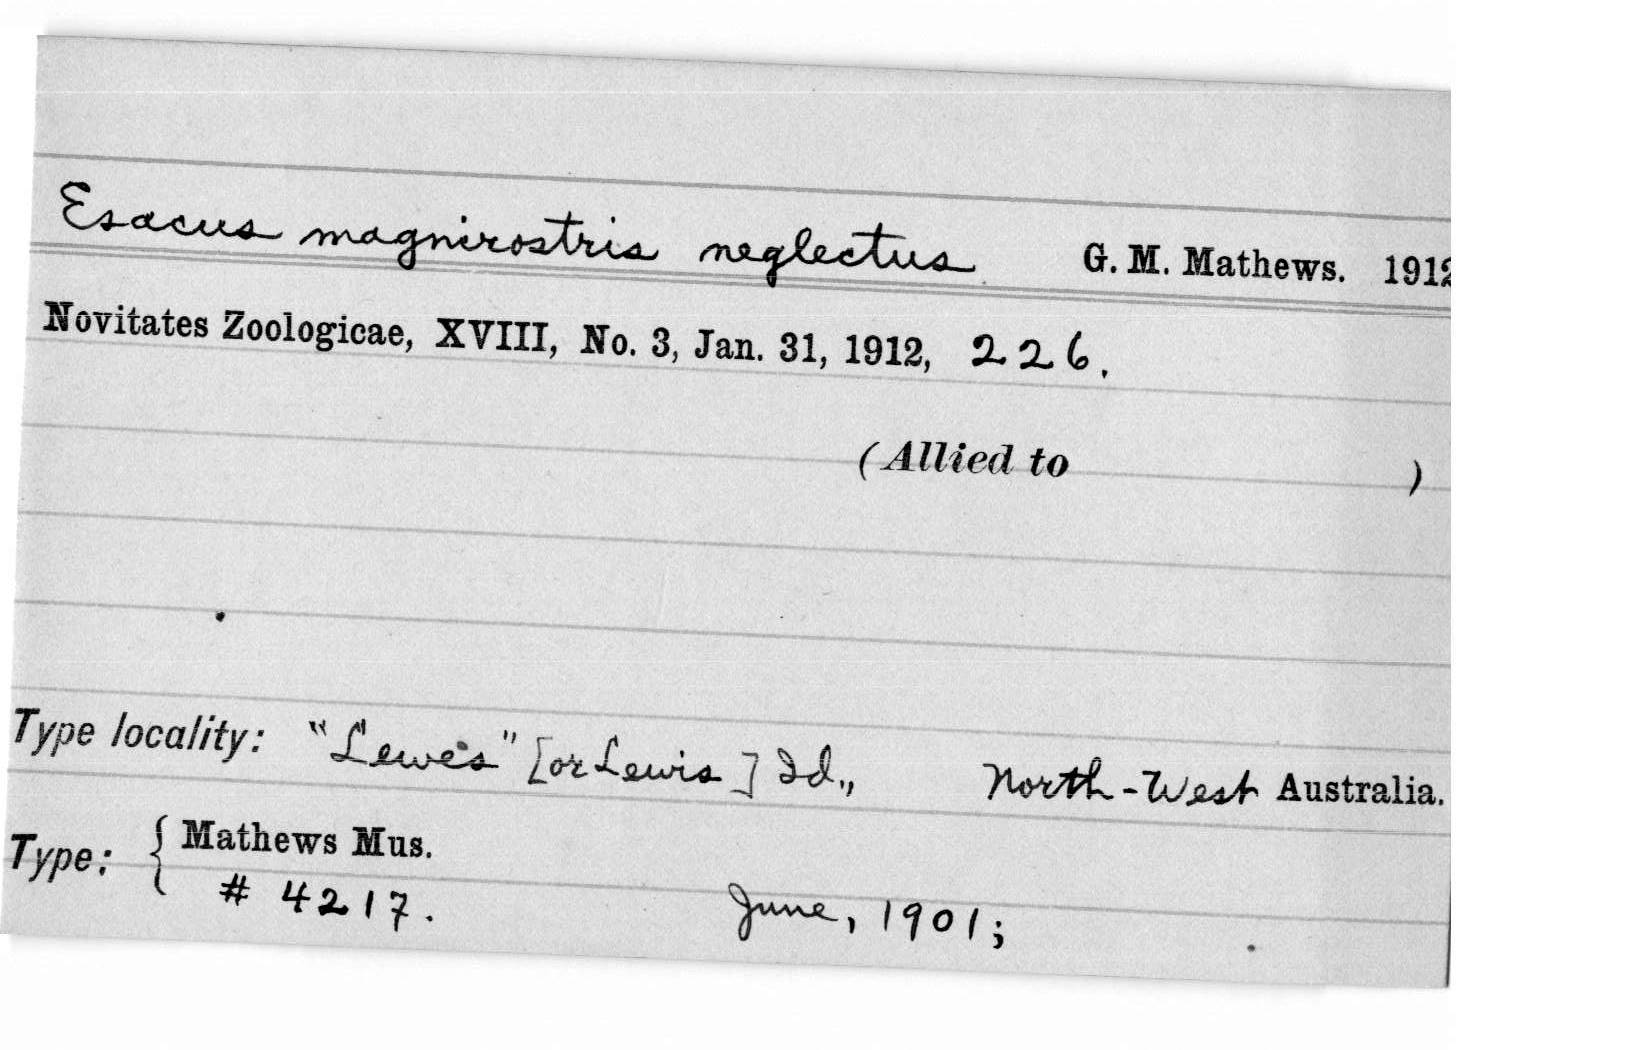 Esacus magnirostris neglectus G. M. Mathews. 1912
Novitates Zoologicae, XVIII, No. 3, Jan. 31, 1912, 226.
(Allied to )
Type locality: "Lewes" [or Lewis] Id., North-West Australia.
Type: { Mathews Mus.
# 4217. June, 1901;